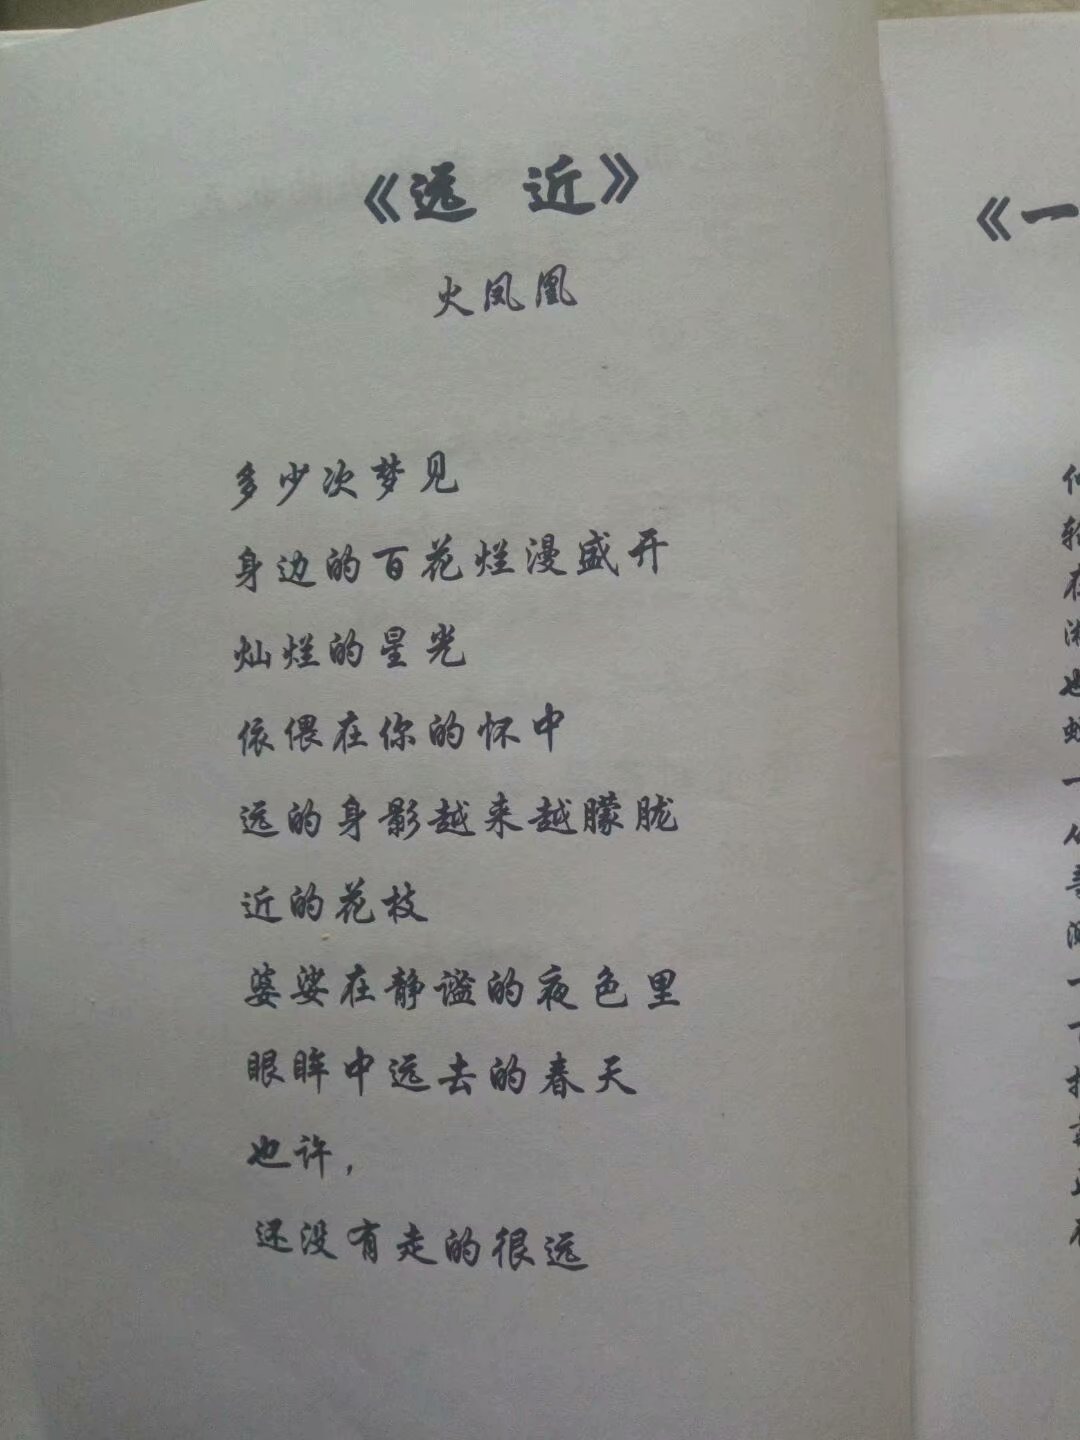 《远 近》
火凤凰
多少次梦见
身边的百花烂漫盛开
灿烂的星光
依偎在你的怀中
远的身影越来越朦胧
近的花枝
婆娑在静谧的夜色里
眼眸中远去的春天
也许，
还没有走的很远
《一